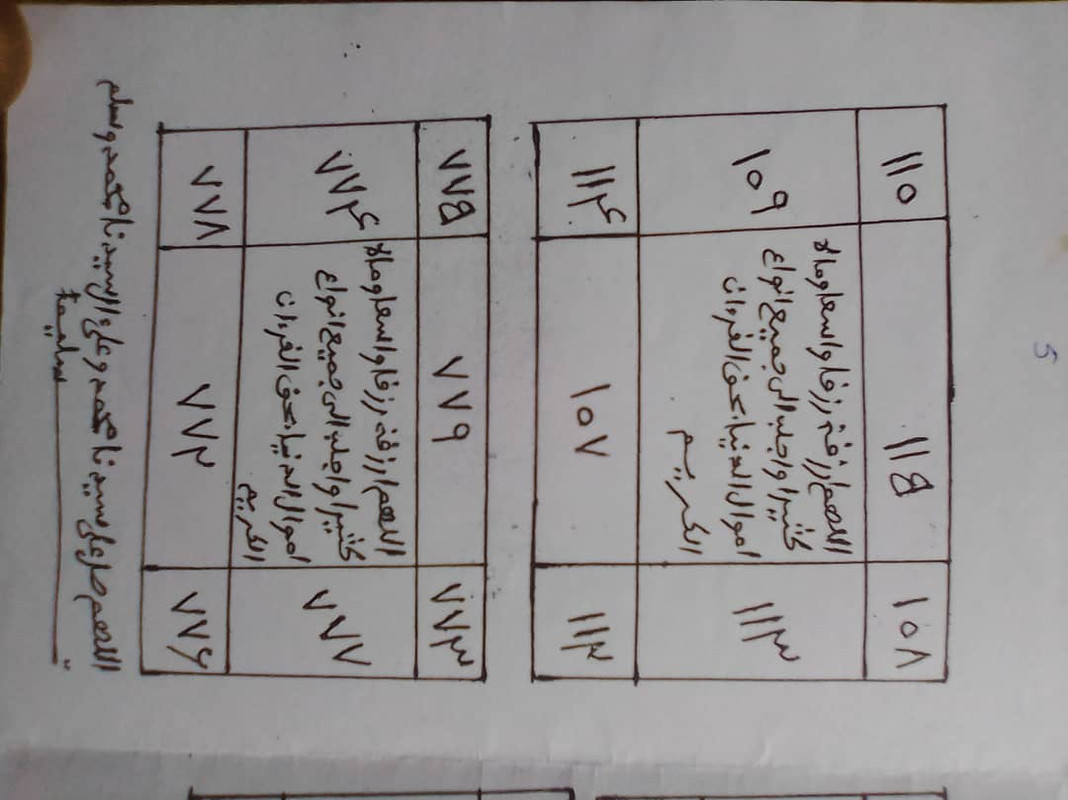 5
١٠٨ ١١٥ ١١٠
١١٣ ١٠٩
اللهم ارزقنے رزقا واسعا ومالا
كثيرا واجلب الى جميع انواع
اموال الدنيا بحق القرءان
الكريم
١١٢ ١٠٧ ١١٤
٧٧٣ ٧٧٩ ٧٧٥
٧٧٧ ٧٧٤
اللهم ارزقنے رزقا واسعا ومالا
كثيرا واجلب الى جميع انواع
اموال الدنيا بحق القرءان
الكريم
٧٧٦ ٧٧٢ ٧٧٨
اللهم صل على سيدنا محمد وعلى ءال سيدنا محمد وسلم